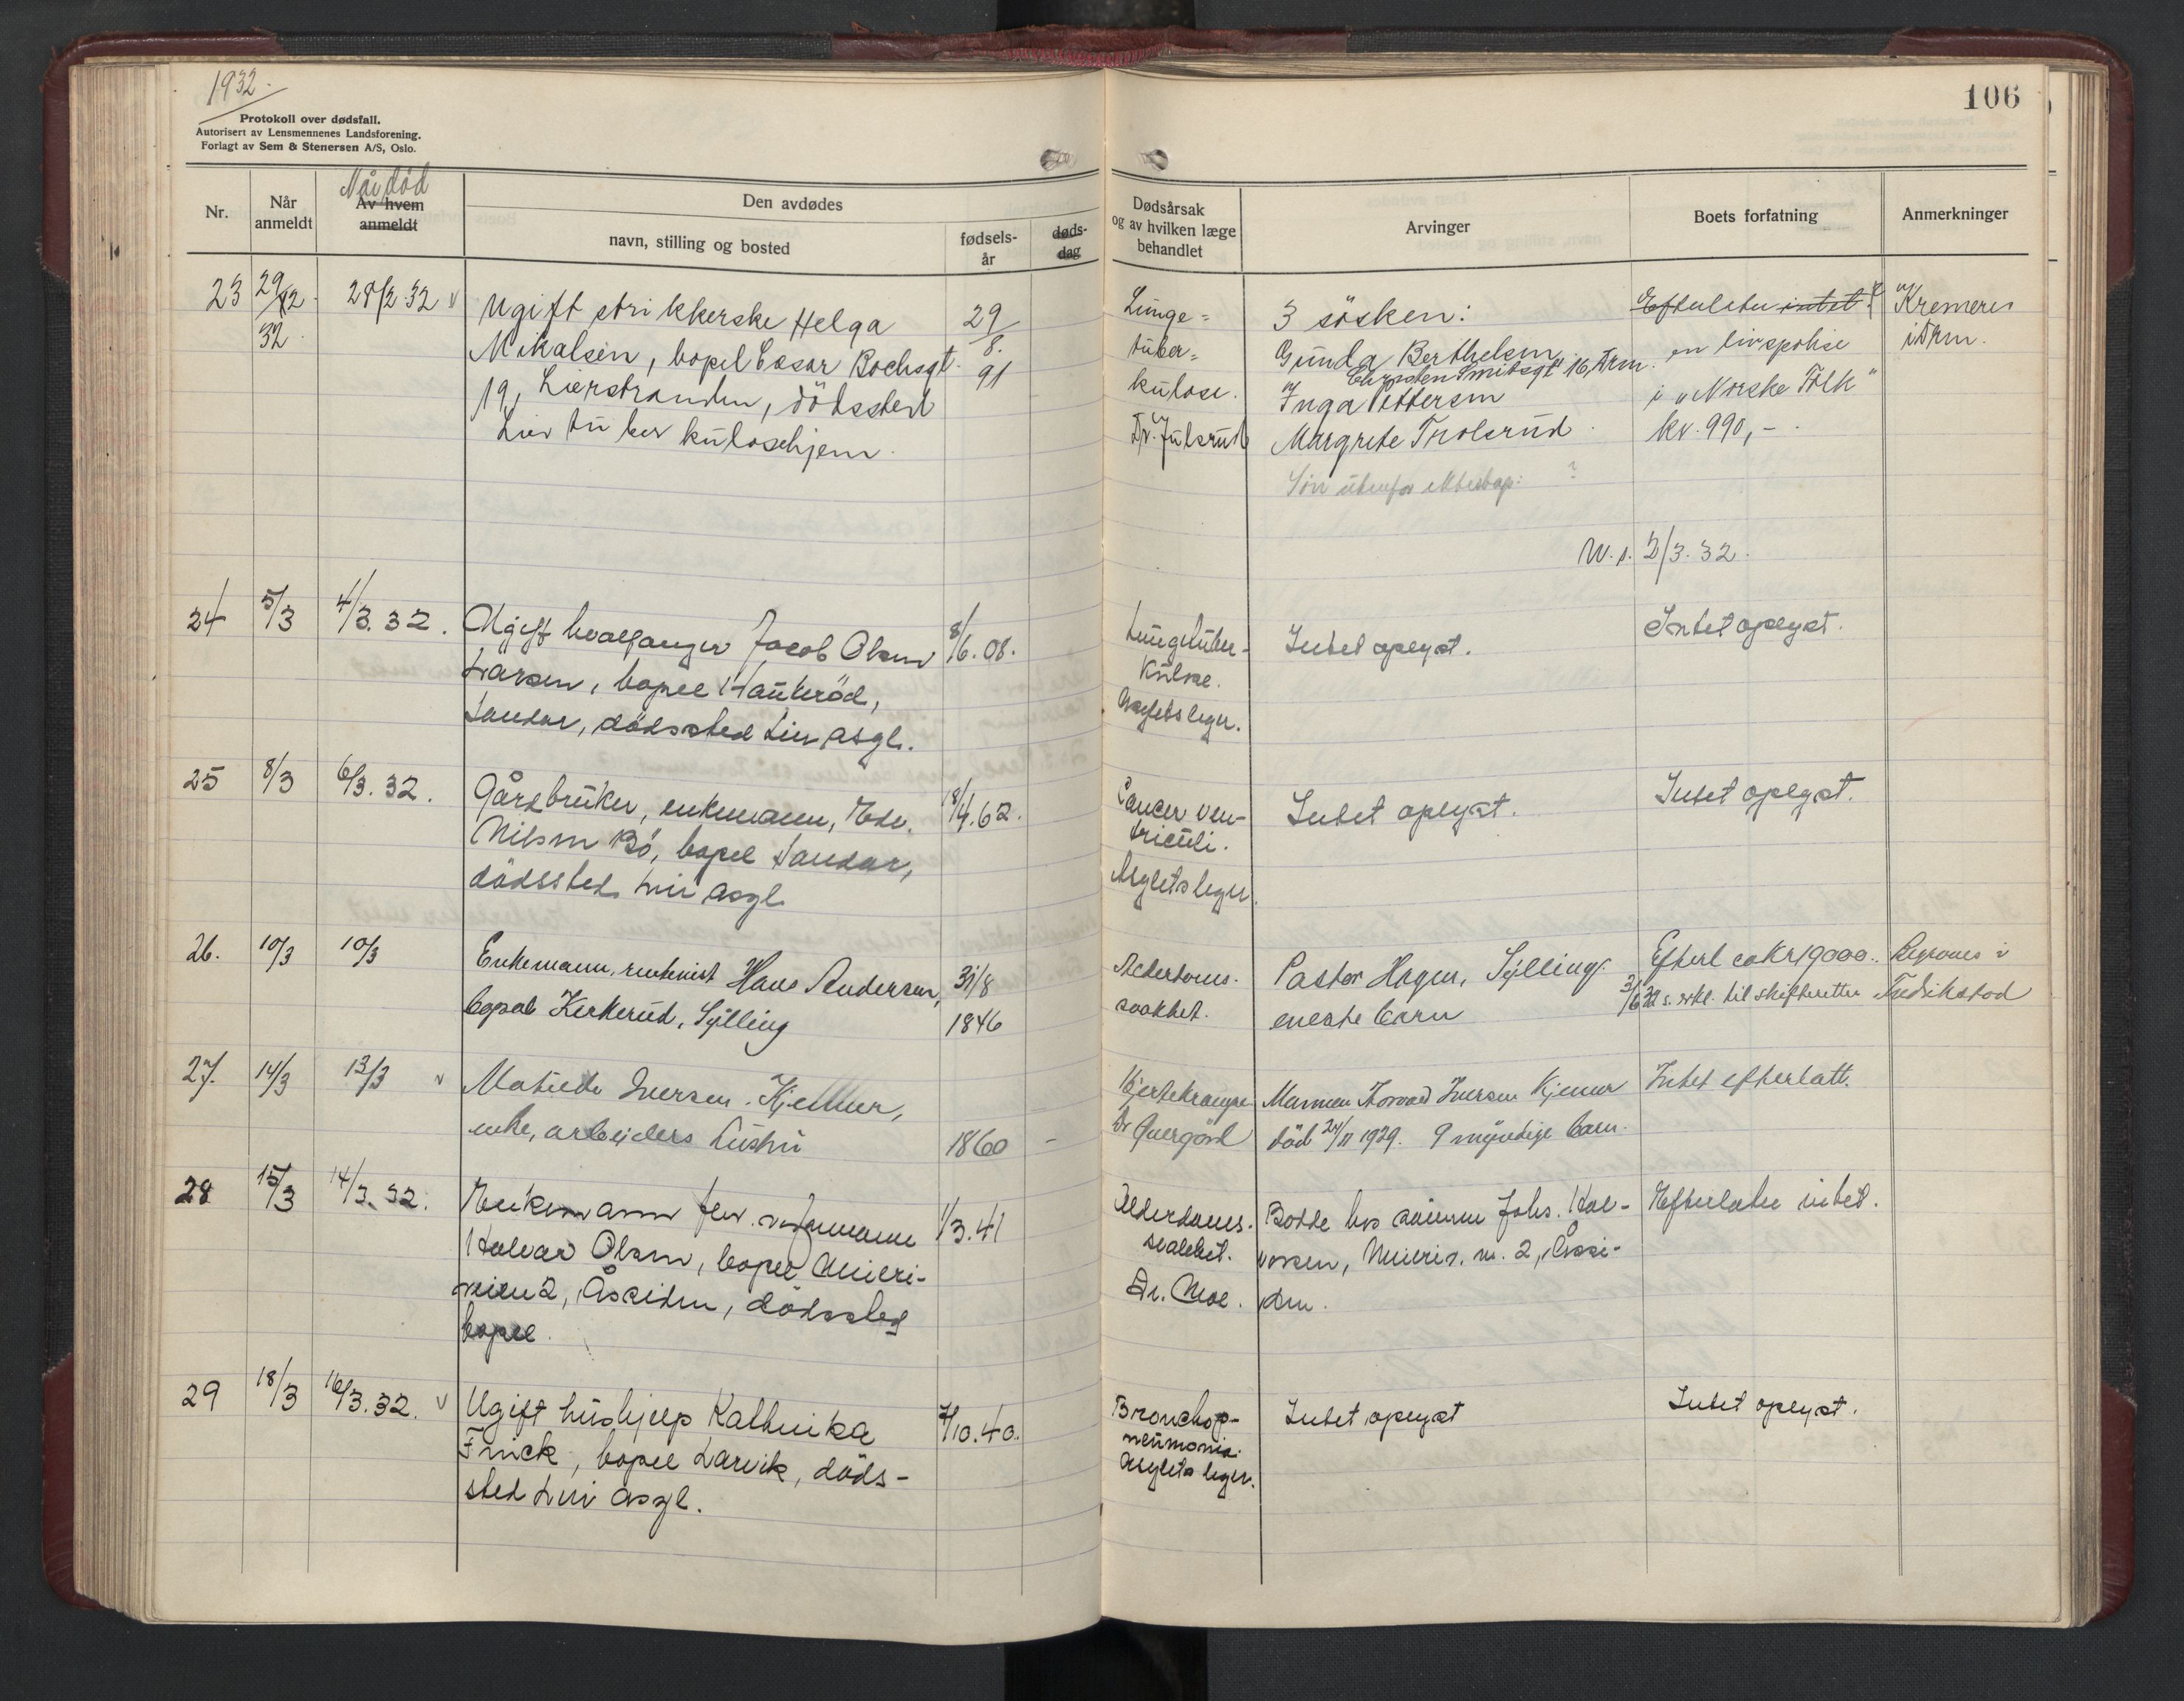 1932.
Protokoll over dødsfall.
Autorisert av Lensmennenes Landsforening.
Forlagt av Sem & Stenersen A/S, Oslo.
106
Nr.
Når anmeldt
Når død
Av hvem anmeldt
Den avdødes
navn, stilling og bosted
fødsels-år
døds-dag
Dødsårsak og av hvilken læge behandlet
Arvinger
Boets forfatning
Anmerkninger
23 29/2 32 28/2.32 v
Ugift strikkerske Helga
Mikalsen, bopel Cesar Bochsgt.
19, Lierstranden, dödssted
Lier tuberkulosehjem.
29/8. 91
Lunge=
tuber=
kulose.
Dr. Julsrud
3 sösken:
Gunda Berthelsen
Christen Smitsgt 16, Drm.
Inga Pettersen
Margrete Trolsrud.
Sön utenfor ekteskap: ?
Efterlater intet.
en livspolise
i "Norske Folk"
kr. 990,-.
Kremeres
i Drm.
2/3.32.
24 5/3 4/3.32.
Ugift hvalfanger Jacob Olsen
Larsen, bopel Haukeröd,
Sandar, dödssted Lier asyl.
8/6.08.
Lungetuber-
kulose.
Asylets leger.
Intet oplyst.
Intet oplyst.
25 8/3 6/3.32.
Gårdbruker, enkemann, Edv.
Nilsen Bö, bopel Sandar,
dödssted Lier asyl
18/4.62.
Cancer ven-
triculi.
Asylets leger.
Intet oplyst.
Intet oplyst.
26. 10/3 10/3
Enkemann, rentenist Hans Andersen,
bopæl Kirkerud, Sylling
31/8
1846
Alderdoms-
svakhet.
Pastor Hagen, Sylling.
eneste barn
Efterl ca kr 19000.
til skifteretten
Begraves i
Fredrikstad
27. 14/3 13/3 v
Matilde Iversen Kjemner,
enke, arbeiders hustru
1860 -
Hjertekrampe
Dr
Mannen Iversen Kjemner
död 24/11 1929. 9 myndige barn.
Intet efterlatt.
28 15/3 14/3.32.
Enkemann
Halvar Olsen, bopel Meieri-
veien 2, Åssiden, dödssted
bopel.
1/3.41
Alderdoms-
svakhet.
Dr. Moe.
Bodde hos sönnen Johs. Hal-
vorsen, Meieriv. nr. 2, Åssi-
den.
Efterlater intet.
29 18/3 16/3.32. v
Ugift hushjelp Kathinka
Frick, bopel Larvik, döds-
sted Lier asyl.
7/10.40.
Bronchop-
neumonia.
Asylets leger.
Intet oplyst
Intet oplyst.